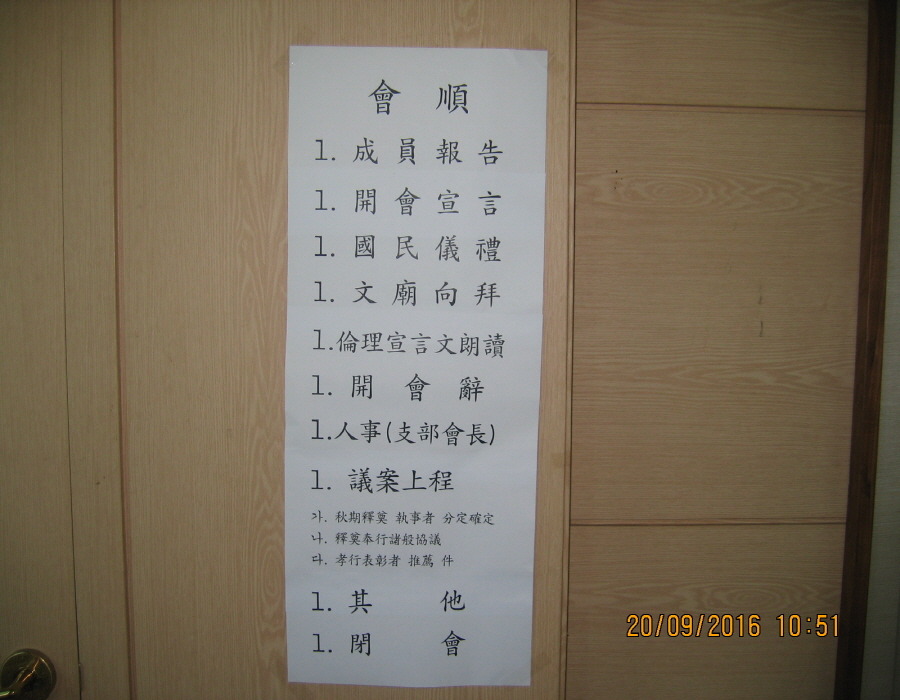 會 順
1. 成 員 報 告
1. 開 會 宣 言
1. 國 民 儀 禮
1. 文 廟 向 拜
1.倫理宣言文朗讀
1. 開 會 辭
1.人事(支部會長)
1. 議案上程
가. 秋期釋奠 執事者 分定確定
나. 釋奠奉行諸般協議
다. 孝行表彰者 推薦 件
1. 其 他
1. 閉 會
20/09/2016 10:51